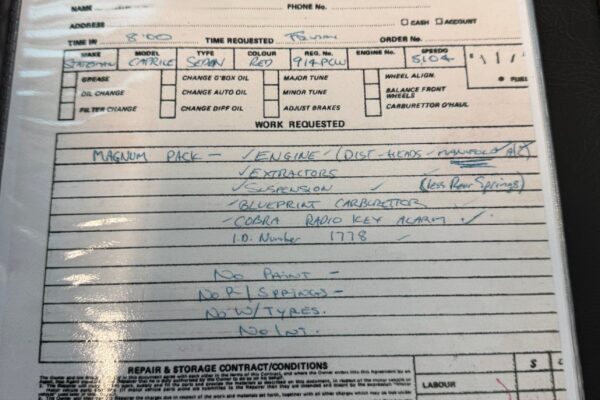 NAME PHONE No.
ADDRESS CASH ACCOUNT
TIME IN 8'00 TIME REQUESTED ORDER No.
MAKE MODEL TYPE COLOUR REG. No. ENGINE No. SPEEDO
STATESMAN CAPRICE SEDAN RED 914-PCW 5104
GREASE CHANGE G'BOX OIL MAJOR TUNE WHEEL ALIGN.
OIL CHANGE CHANGE AUTO OIL MINOR TUNE BALANCE FRONT WHEELS
FILTER CHANGE CHANGE DIFF OIL ADJUST BRAKES CARBURETTOR O'HAUL
WORK REQUESTED
MAGNUM PACK – ✓ENGINE – (DIST – HEADS – MANIFOLD
✓EXTRACTORS
✓SUSPENSION ✓ (less Rear Springs)
✓BLUEPRINT CARBURETTOR
✓COBRA RADIO KEY ALARM ✓
I.D. Number 1778 ✓
NO PAINT –
NO R/SPRINGS –
NO W/TYRES.
NO INT.
REPAIR & STORAGE CONTRACT/CONDITIONS
S
LABOUR